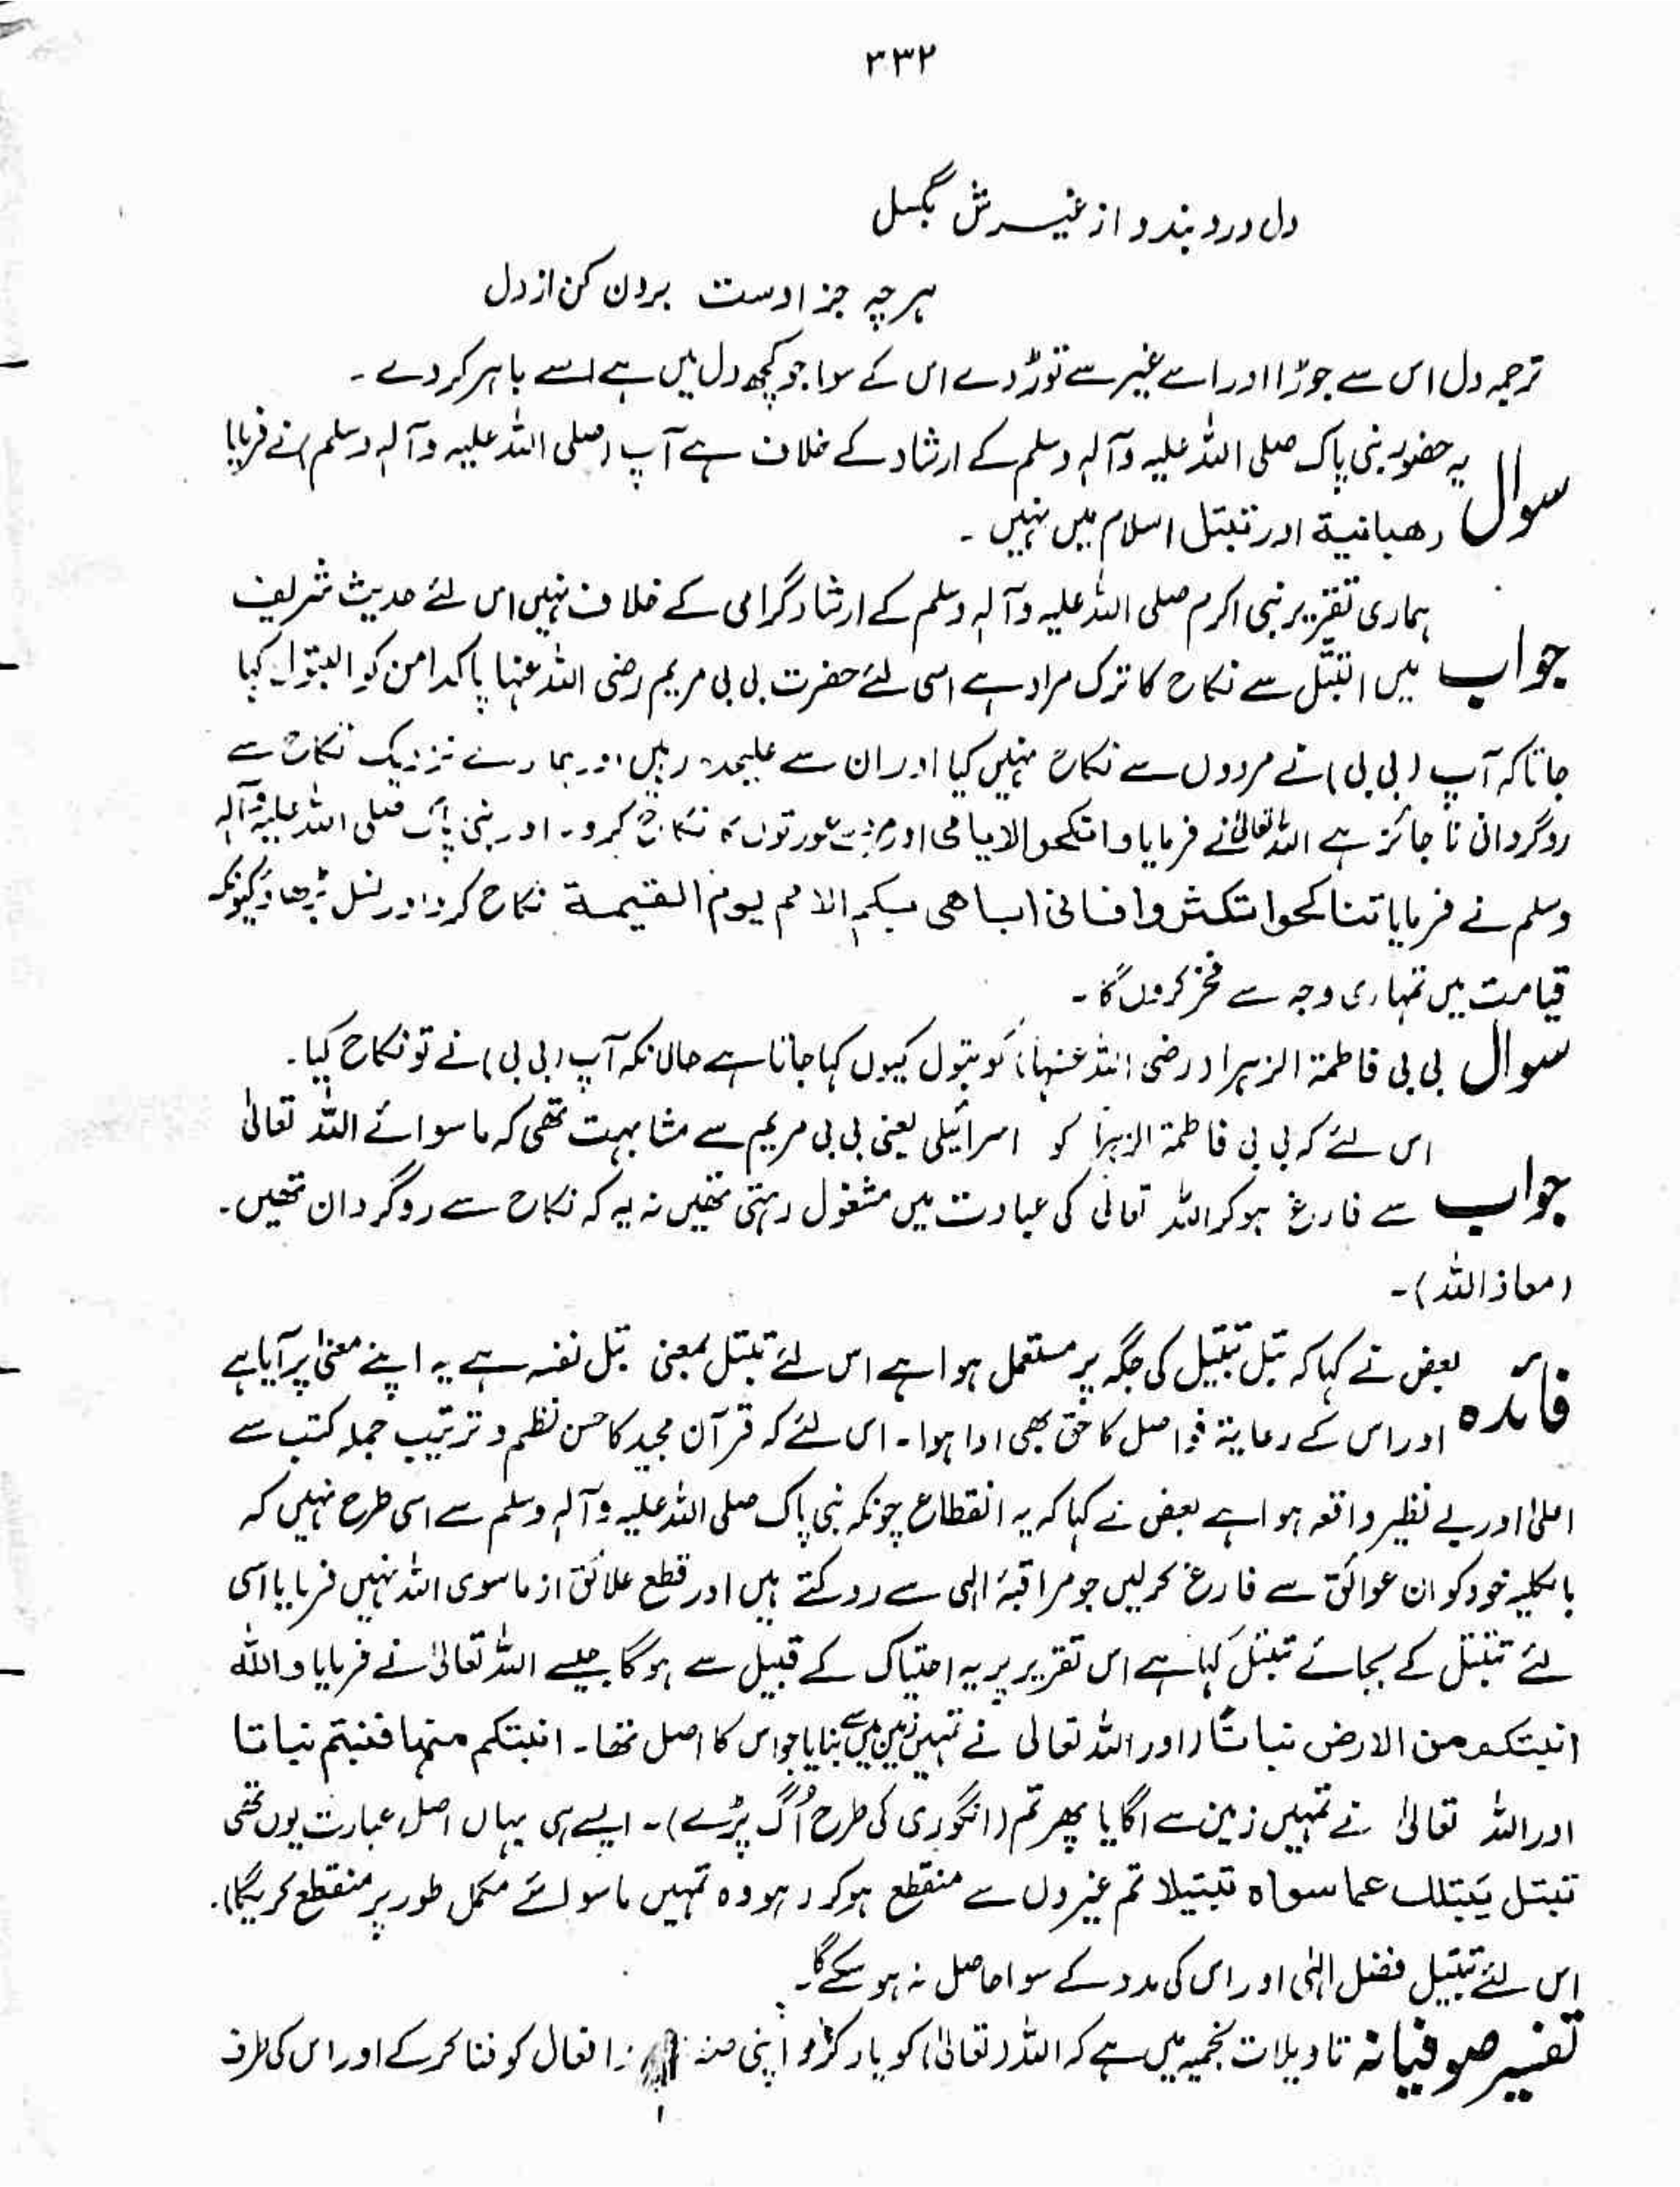 ٣٣٢
دل درو بندد از غیرش بگسل
ہر چہ جز اوست برون کن از دل
ترجمہ دل اس سے جوڑ ا اور اسے غیر سے توڑ دے اس کے سوا جو کچھ دل میں ہے اسے باہر کر دے ۔
سوال یہ حضور نبی پاک صلی اللہ علیہ وآلہ وسلم کے ارشاد کے خلاف ہے آپ (صلی اللہ علیہ وآلہ وسلم) نے فرمایا
رھبانیة اور تبتل اسلام میں نہیں ۔
ہماری تقریر نبی اکرم صلی اللہ علیہ وآلہ وسلم کے ارشاد گرامی کے خلاف نہیں اس لئے حدیث شریف
جواب میں التبتّل سے نکاح کا ترک مراد ہے اسی لئے حضرت بی بی مریم رضی اللہ عنہا پاکدامن کو البتول کہا
جاتا کہ آپ (بی بی) نے مردوں سے نکاح نہیں کیا اور ان سے علیحدہ رہیں اور ہمارے نزدیک نکاح سے
روگردانی نا جائز ہے اللہ تعالیٰ نے فرمایا وانکحوالایامی اور عورتوں کا نکاح کرو۔ اور نبی پاک صلی اللہ علیہ وآلہ
وسلم نے فرمایا تناکحوا تکثروا فانی اباھی بکم الامم یوم القیمة نکاح کرو اور نسل بڑھاؤ کیونکہ
قیامت میں تمہاری وجہ سے فخر کروں گا ۔
سوال بی بی فاطمۃ الزہراء رضی اللہ عنہا) کو بتول کیوں کہا جاتا ہے حالانکہ آپ (بی بی) نے تو نکاح کیا ۔
اس لئے کہ بی بی فاطمۃ الزہرا کو اسرائیلی یعنی بی بی مریم سے مشابہت تھی کہ ماسوائے اللہ تعالیٰ
جواب سے فارغ ہو کر اللہ تعالی کی عبادت میں مشغول رہتی تھیں نہ یہ کہ نکاح سے روگردان تھیں ۔
(معاذ اللہ) ۔
فائدہ بعض نے کہا کہ تبتل تبتیل کی جگہ پر مستعمل ہوا ہے اس لئے تبتل بمعنی بتل نفسہ ہے یہ اپنے معنیٰ پر آیا ہے
اور اس کے رعایۃ فواصل کا حق بھی ادا ہوا ۔ اس لئے کہ قرآن مجید کا حسن نظم و ترتیب جملہ کتب سے
اعلیٰ اور بے نظیر واقعہ ہوا ہے بعض نے کہا کہ یہ انقطاع چونکہ نبی پاک صلی اللہ علیہ وآلہ وسلم سے اسی طرح نہیں کہ
بالکلیہ خود کو ان عوائق سے فارغ کرلیں جو مراقبۂ الہی سے روکتے ہیں اور قطع علائق از ماسوی اللہ نہیں فرمایا اسی
لئے تبتل کے بجائے تبتل کہا ہے اس تقریر پر یہ احتباک کے قبیل سے ہوگا جیسے اللہ تعالیٰ نے فرمایا واللہ
انبتکم من الارض نباتًا (اور اللہ تعالی نے تمہیں زمین میں سے بنایا جو اس کا اصل تھا ۔ انبتکم منہا فنبتم نباتا
اور اللہ تعالیٰ نے تمہیں زمین سے اگایا پھر تم (انگوری کی طرح اُگ پڑے) ۔ ایسے ہی یہاں اصل عبارت یوں تھی
تبتل یبتلک عما سواہ تبتیلا تم غیروں سے منقطع ہو کر رہو وہ تمہیں ماسوائے مکمل طور پر منقطع کریگا)
اس لئے تبتیل فضل الہٰی اور اس کی مدد کے سوا حاصل نہ ہو سکے گا ۔
تفسیر صوفیانہ تاویلات نجمیہ میں ہے کہ اللہ (تعالیٰ) کو یاد کرو اپنی افعال کو فنا کر کے اور اس کی طرف